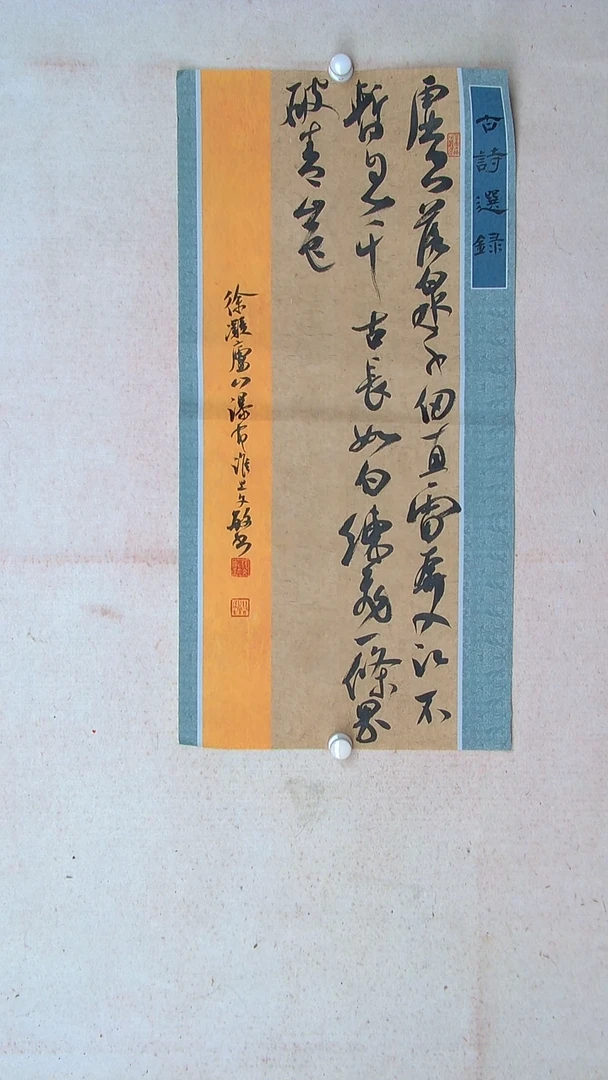 古詩選録
虛空落泉千仞直雷奔入江不
暫息千古長如白練飛一條界
破青山色
徐凝廬山瀑布淮上文書